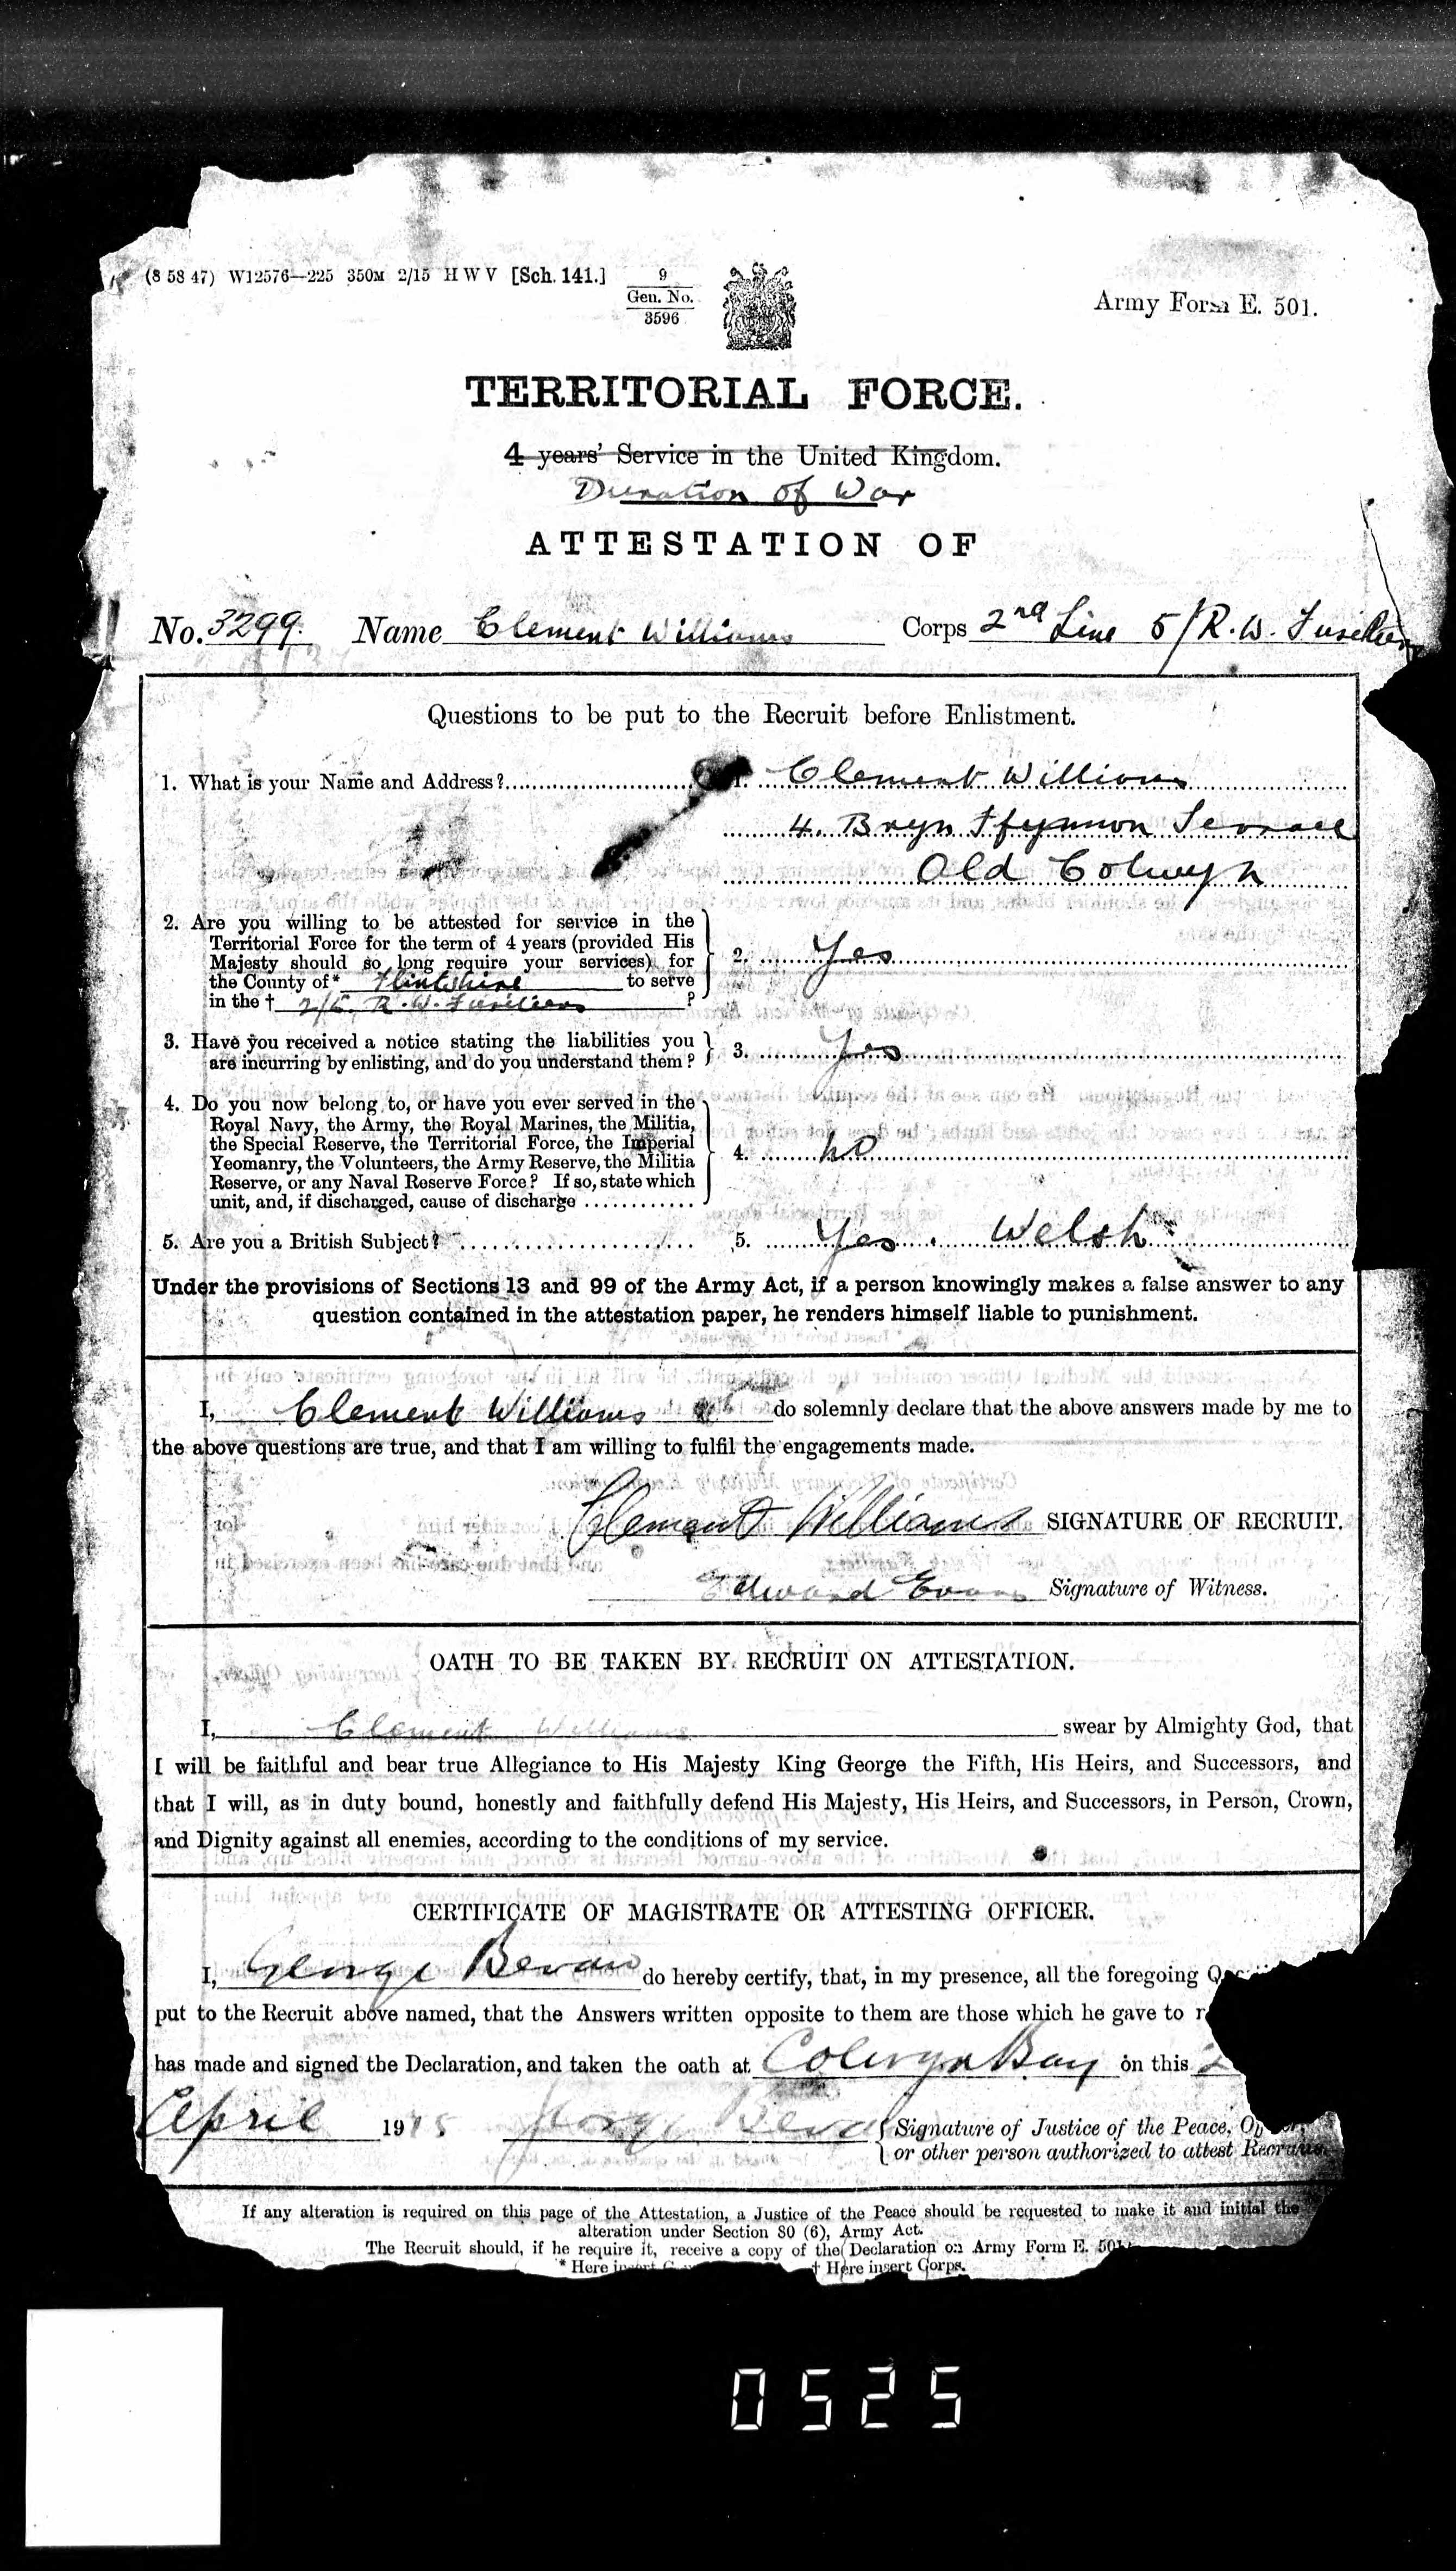 (8 58 47) W12576—225 350M 2/15 H W V [Sch. 141.]
9
Gen. No.
3596
Army Form E. 501.
TERRITORIAL FORCE.
4 years' Service in the United Kingdom.
Duration of War
ATTESTATION OF
No. 3299. Name Clement Williams Corps 2nd Line 5/R.W. Fusiliers
Questions to be put to the Recruit before Enlistment.
1. What is your Name and Address? 1. Clement Williams
4. Bryn Ffynnon Terrace
Old Colwyn
2. Are you willing to be attested for service in the
Territorial Force for the term of 4 years (provided His
Majesty should so long require your services) for
the County of* Flintshire to serve
in the † 2/5. R.W. Fusiliers ?
2. Yes
3. Have you received a notice stating the liabilities you
are incurring by enlisting, and do you understand them?
3. Yes
4. Do you now belong to, or have you ever served in the
Royal Navy, the Army, the Royal Marines, the Militia,
the Special Reserve, the Territorial Force, the Imperial
Yeomanry, the Volunteers, the Army Reserve, the Militia
Reserve, or any Naval Reserve Force? If so, state which
unit, and, if discharged, cause of discharge
4. no
5. Are you a British Subject? 5. Yes. Welsh
Under the provisions of Sections 13 and 99 of the Army Act, if a person knowingly makes a false answer to any
question contained in the attestation paper, he renders himself liable to punishment.
I, Clement Williams do solemnly declare that the above answers made by me to
the above questions are true, and that I am willing to fulfil the engagements made.
Clement Williams SIGNATURE OF RECRUIT.
Edward Evans Signature of Witness.
OATH TO BE TAKEN BY RECRUIT ON ATTESTATION.
I, Clement Williams swear by Almighty God, that
I will be faithful and bear true Allegiance to His Majesty King George the Fifth, His Heirs, and Successors, and
that I will, as in duty bound, honestly and faithfully defend His Majesty, His Heirs, and Successors, in Person, Crown,
and Dignity against all enemies, according to the conditions of my service.
CERTIFICATE OF MAGISTRATE OR ATTESTING OFFICER.
I, George Bevan do hereby certify, that, in my presence, all the foregoing
put to the Recruit above named, that the Answers written opposite to them are those which he gave to
has made and signed the Declaration, and taken the oath at Colwyn Bay on this 2
April 1915 George Bevan
Signature of Justice of the Peace,
or other person authorized to attest Recruits.
If any alteration is required on this page of the Attestation, a Justice of the Peace should be requested to make it and initial the
alteration under Section 80 (6), Army Act.
The Recruit should, if he require it, receive a copy of the Declaration on Army Form E. 501
* Here insert † Here insert Corps.
0525